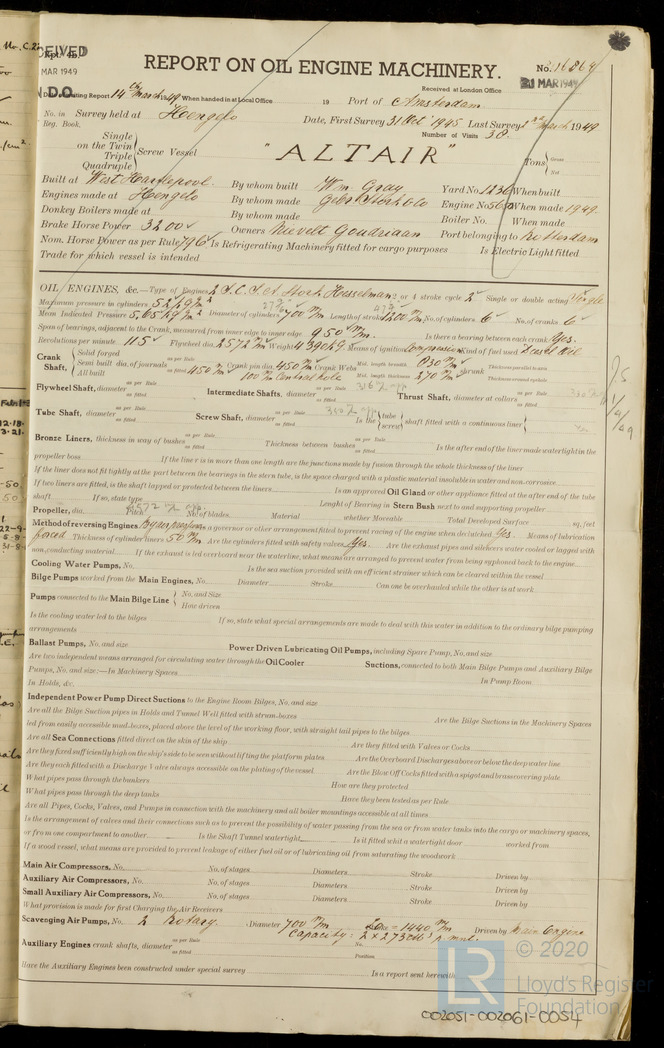 RECEIVED
MAR 1949
D.O.
REPORT ON OIL ENGINE MACHINERY.
No. 16864
21 MAR 1949
Received at London Office
Date of writing Report 14th March 1949 When handed in at Local Office 19 Port of Amsterdam
No. in Survey held at Hengelo Date, First Survey 31 Oct 1945 Last Survey 2nd March 1949
Reg. Book. Number of Visits 38
Single
on the Twin
Triple
Quadruple
Screw Vessel
"ALTAIR"
Tons Gross
Net
Built at West Hartlepool By whom built Wm. Gray Yard No. 1236 When built
Engines made at Hengelo By whom made Gebr. Stork & Co Engine No. When made 1949.
Donkey Boilers made at By whom made Boiler No. When made
Brake Horse Power 3200 Owners Nievelt Goudriaan Port belonging to Rotterdam
Nom. Horse Power as per Rule 796 Is Refrigerating Machinery fitted for cargo purposes Is Electric Light fitted
Trade for which vessel is intended
OIL ENGINES, &c.—Type of Engines 2 S.C.S.A Stork Hesselman 2 or 4 stroke cycle 2 Single or double acting Single
Maximum pressure in cylinders 52 kg/cm² Diameter of cylinders 700 m/m Length of stroke 1200 m/m No. of cylinders 6 No. of cranks 6
Mean Indicated Pressure 5,65 kg/cm²
Span of bearings, adjacent to the Crank, measured from inner edge to inner edge 950 m/m Is there a bearing between each crank Yes.
Revolutions per minute 115 Flywheel dia. 2572 m/m Weight 4390 kg. Means of ignition Compression Kind of fuel used Diesel Oil
Crank Shaft, Solid forged
Semi built
All built
dia. of journals as per Rule
as fitted 450 m/m Crank pin dia. 450 m/m Crank Webs Mid. length breadth 830 m/m
Mid. length thickness 270 m/m shrunk Thickness parallel to axis
Thickness around eyehole
100 m/m Central hole
Flywheel Shaft, diameter as per Rule
as fitted
Intermediate Shafts, diameter as per Rule
as fitted
Thrust Shaft, diameter at collars as per Rule
as fitted
Tube Shaft, diameter as per Rule
as fitted
Screw Shaft, diameter as per Rule
as fitted
Is the tube
screw shaft fitted with a continuous liner
Bronze Liners, thickness in way of bushes as per Rule
as fitted
Thickness between bushes as per Rule
as fitted
Is the after end of the liner made watertight in the
propeller boss If the liner is in more than one length are the junctions made by fusion through the whole thickness of the liner
If the liner does not fit tightly at the part between the bearings in the stern tube, is the space charged with a plastic material insoluble in water and non-corrosive
If two liners are fitted, is the shaft lapped or protected between the liners Is an approved Oil Gland or other appliance fitted at the after end of the tube
shaft If so, state type Lenght of Bearing in Stern Bush next to and supporting propeller
Propeller, dia. Pitch No. of blades Material whether Moveable Total Developed Surface sq. feet
Method of reversing Engines By air pressure Is a governor or other arrangement fitted to prevent racing of the engine when declutched Yes. Means of lubrication
forced Thickness of cylinder liners 50 m/m Are the cylinders fitted with safety valves Yes. Are the exhaust pipes and silencers water cooled or lagged with
non-conducting material If the exhaust is led overboard near the waterline, what means are arranged to prevent water from being syphoned back to the engine
Cooling Water Pumps, No. Is the sea suction provided with an efficient strainer which can be cleared within the vessel
Bilge Pumps worked from the Main Engines, No. Diameter Stroke Can one be overhauled while the other is at work
Pumps connected to the Main Bilge Line No. and Size
How driven
Is the cooling water led to the bilges If so, state what special arrangements are made to deal with this water in addition to the ordinary bilge pumping
arrangements
Ballast Pumps, No. and size Power Driven Lubricating Oil Pumps, including Spare Pump, No. and size
Are two independent means arranged for circulating water through the Oil Cooler Suctions, connected to both Main Bilge Pumps and Auxiliary Bilge
Pumps, No. and size:—In Machinery Spaces In Pump Room
In Holds, &c.
Independent Power Pump Direct Suctions to the Engine Room Bilges, No. and size
Are all the Bilge Suction pipes in Holds and Tunnel Well fitted with strum-boxes Are the Bilge Suctions in the Machinery Spaces
led from easily accessible mud-boxes, placed above the level of the working floor, with straight tail pipes to the bilges
Are all Sea Connections fitted direct on the skin of the ship Are they fitted with Valves or Cocks
Are they fixed sufficiently high on the ship's side to be seen without lifting the platform plates Are the Overboard Discharges above or below the deep water line
Are they each fitted with a Discharge Valve always accessible on the plating of the vessel Are the Blow Off Cocks fitted with a spigot and brass covering plate
What pipes pass through the bunkers How are they protected
What pipes pass through the deep tanks Have they been tested as per Rule
Are all Pipes, Cocks, Valves, and Pumps in connection with the machinery and all boiler mountings accessible at all times
Is the arrangement of valves and their connections such as to prevent the possibility of water passing from the sea or from water tanks into the cargo or machinery spaces,
or from one compartment to another Is the Shaft Tunnel watertight Is it fitted whit a watertight door worked from
If a wood vessel, what means are provided to prevent leakage of either fuel oil or of lubricating oil from saturating the woodwork
Main Air Compressors, No. No. of stages Diameters Stroke Driven by
Auxiliary Air Compressors, No. No. of stages Diameters Stroke Driven by
Small Auxiliary Air Compressors, No. No. of stages Diameters Stroke Driven by
What provision is made for first Charging the Air Receivers
Scavenging Air Pumps, No. 2 Rotary. Diameter 700 m/m 1440 m/m Driven by Main Engine
Capacity: 2 x 273
Auxiliary Engines crank shafts, diameter as per Rule
as fitted
No.
Position
Have the Auxiliary Engines been constructed under special survey Is a report sent herewith
© 2020
Lloyd's Register
Foundation
LR
002051-002061-0054